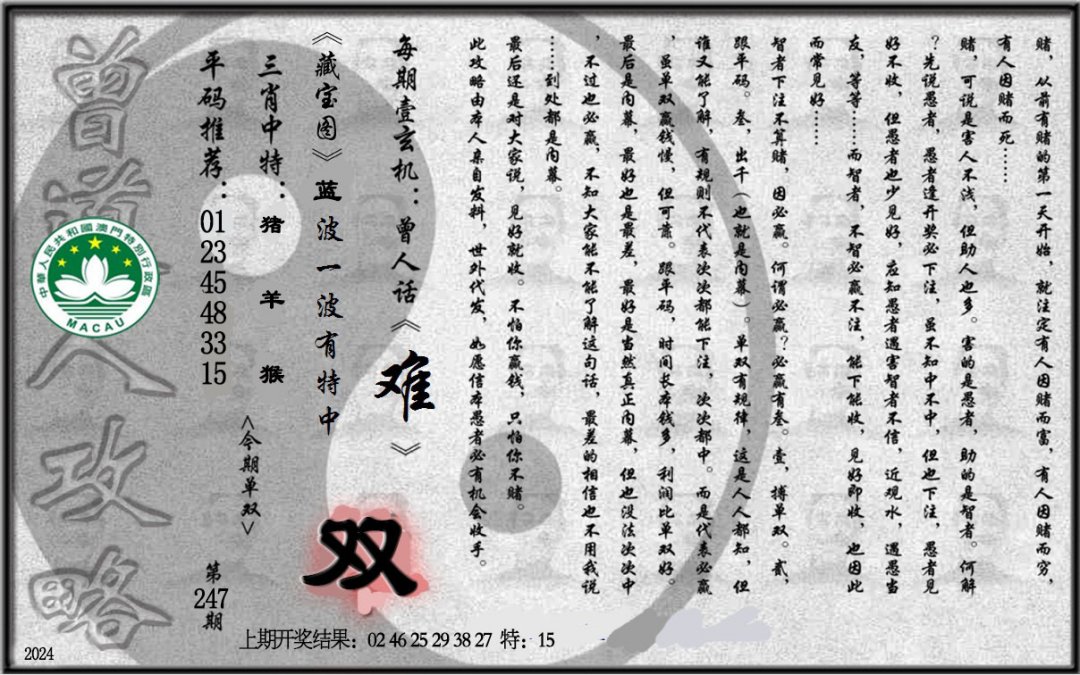 赌，从前有赌的第一天开始，就注定有人因赌而富，有人因赌而穷，
有人因赌而死……
赌，可说是害人不浅，但助人也多。害的是愚者，助的是智者。何解
？先说愚者，愚者逢开奖必下注，虽不知中不中，但也下注，愚者见
好不收，但愚者也少见好，应知愚者遇害智者不信，近观水，遇愚当
友，等等……而智者，不智必赢不注，能下能收，见好即收，也因此
而常见好……
智者下注不算赌，因必赢。何谓必赢？必赢有叁。壹，搏单双。贰，
跟平码。叁，出千（也就是内幕）。单双有规律，这是人人都知，但
谁又能了解，有规则不代表次次都能下注，次次都中。而是代表必赢
，虽单双赢钱慢，但可靠。跟平码，时间长本钱多，利润比单双好。
最后是内幕，最好也是最差，最好是当然真正内幕，但也没法次次中
，不过也必赢，不知大家能不能了解这句话，最差的相信也不用我说
……到处都是内幕。
最后还是对大家说，见好就收。不怕你赢钱，只怕你不赌。
此攻略由本人亲自发料，世外代发，如愿信本愚者必有机会收手。
每期壹玄机：曾人话《难》
《藏宝图》蓝波一波有特中
双
三肖中特：猪 羊 猴
<今期单双>
平码推荐：01 23 45 48 33 15
第247期
曾道人攻略
中華人民共和國澳門特別行政區
MACAU
上期开奖结果：02 46 25 29 38 27 特：15
2024